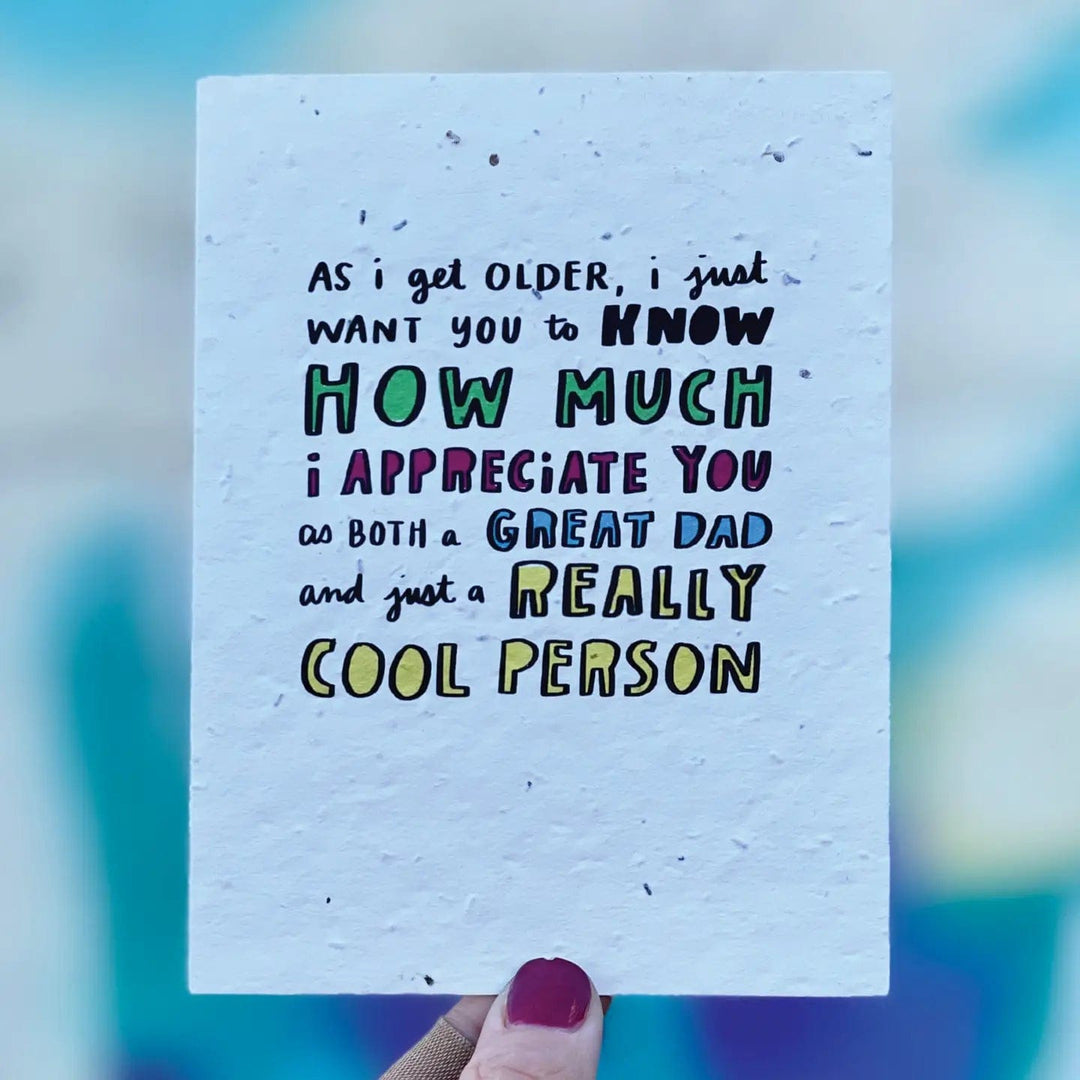 AS i get OLDER, i just
WANT YOU to KNOW
HOW MUCH
i APPRECiATE YOU
as BOTH a GREAT DAD
and just a REALLY
COOL PERSON